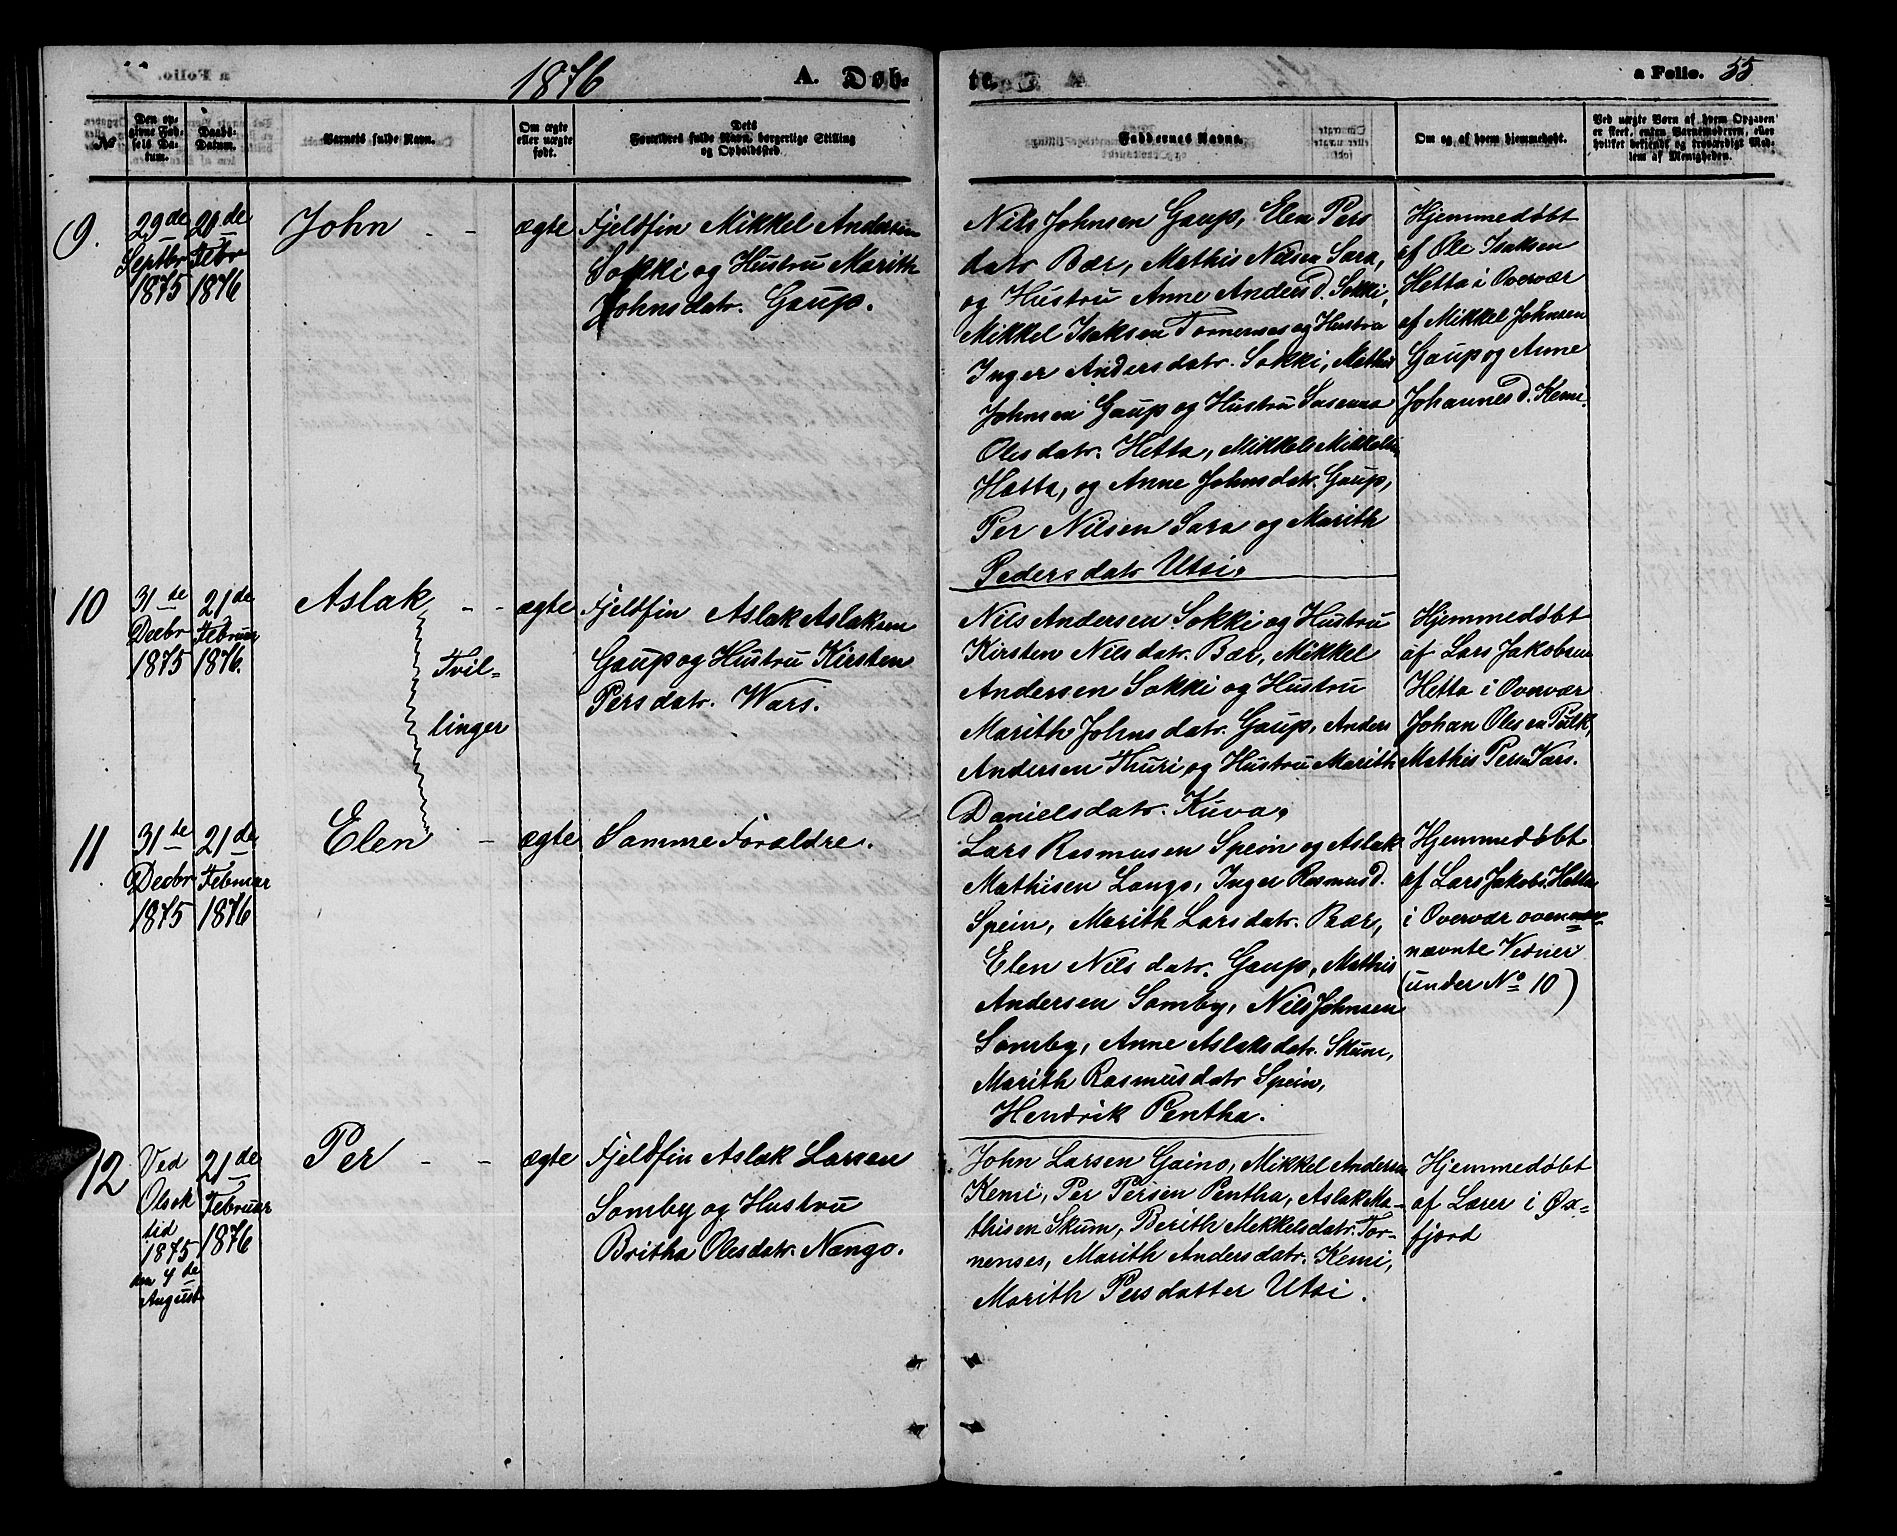 1876 A. Døb-
te. a Folio. 55
№
Den op-
givne Fød-
sels Da-
tum.
Daabs-
Datum.
Barnets fulde Navn.
Om ægte
eller uægte
født.
Dets
Forældres fulde Navn, borgerlige Stilling
og Opholdssted.
Faddernes Navne.
Om og af hvem hjemmedøbt.
Ved uægte Børn af hvem Opgaven
er skeet, enten Barnemoderen, eller
hvilket bekjendt og troværdigt Med-
lem af Menigheden.
9.
29de
Septbr
1875
20de
Febr
1876
John - -
ægte
Fjeldfin Mikkel Andersen
Sokki og Hustru Marith
Johnsdatr. Gaup.
Nils Johnsen Gaup, Elen Pers
datr Bær, Mathis Nilsen Sara,
og Hustru Anne Anders D. Sokki,
Mikkel Isaksen Tornenses og Hustru
Inger Andersdatr. Sokki, Mathis
Johnsen Gaup og Hustru Susanna
Olesdatr. Hetta, Mikkel Mikkelsen
Hatta, og Anne Johnsdatr. Gaup,
Per Nilsen Sara og Marith
Pedersdatr Utsi.
Hjemmedøbt
af Ole Isaksen
Hetta i Overvær
af Mikkel Johnsen
Gaup og Anne
Johannes D. Kemi.
10
31te
Decbr
1875
21de
Februar
1876.
Aslak - -
Tvil-
linger
ægte
Fjeldfin Aslak Aslaksen
Gaup og Hustru Kirsten
Persdatr. Wars.
Nils Andersen Sokki og Hustru
Kirsten Nilsdatr. Bær, Mikkel
Andersen Sokki og Hustru
Marith Johnsdatr. Gaup, Anders
Andersen Thuri og Hustru Marith
Danielsdatr. Kuva.
Hjemmedøbt
af Lars Jakobsen
Hetta i Overvær
Johan Olesen Pulk,
Mathis Persen Vars.
11
31te
Decbr
1875
21de
Februar
1876
Elen -
ægte
Samme Forældre.
Lars Rasmusen Spein og Aslak
Mathisen Lango, Inger Rasmus D.
Spein, Marith Larsdatr. Bær,
Elen Nilsdatr. Gaup, Mathis
Andersen Somby, Nils Johnsen
Somby, Anne Aslaksdatr. Skum,
Marith Rasmusdatr Spein,
Hendrik Pentha.
Hjemmedøbt
af Lars Jakobs. Hetta
i Overvær oven
nævnte Vidner
(under No 10)
12
Ved
Olsok
tid
1875
den 4de
August
21de
Februar
1876
Per - -
ægte
Fjeldfin Aslak Larsen
Somby og Hustru
Britha Olesdatr. Nango.
John Larsen Gaino, Mikkel Andersen
Kemi, Per Persen Pentha, Aslak Ma-
thisen Skum, Berith Mikkelsdatr. Tor-
nenses, Marith Andersdatr. Kemi,
Marith Persdatter Utsi.
Hjemmedøbt
af Lærer i Øx-
fjord